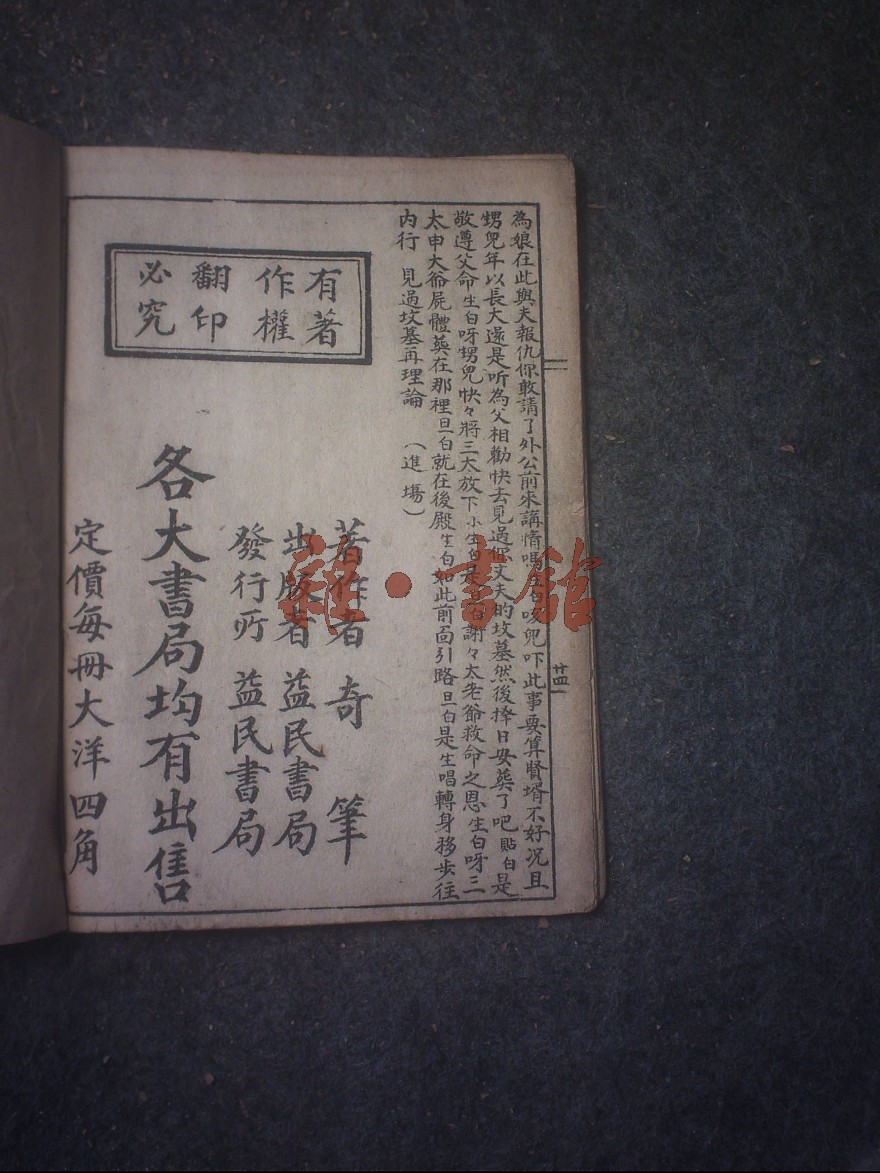 為娘在此與夫報仇你敢請了外公前來講情嗎生白唆兒吓此事要算賢壻不好況且
甥兒年以長大還是听為父相勸快去見過你丈夫的坟墓然後擇日安葬了吧貼白是
敬遵父命生白呀甥兒快々將三大放下小生白是旦白謝々太老爺救命之恩生白呀三
太申大爺屍體葬在那裡旦白就在後殿生白如此前面引路旦白是生唱轉身移步往
内行 見過坟墓再理論 (進場)
廿四
有著
作權
翻印
必究
著作者 奇筆
出版者 益民書局
發行所 益民書局
各大書局均有出售
定價每冊大洋四角
雜·書館